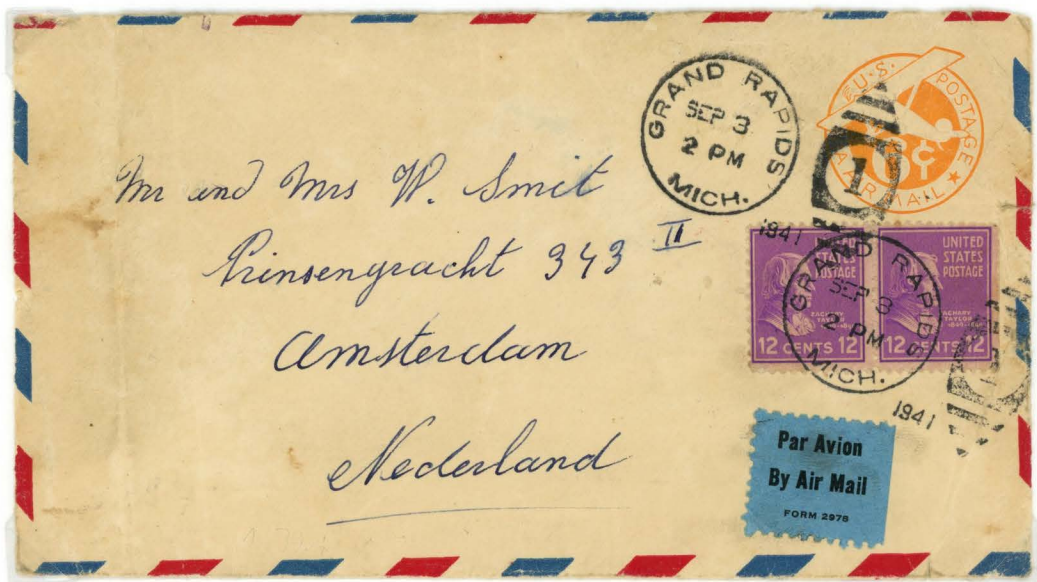 U.S. POSTAGE
6¢
AIR MAIL
GRAND RAPIDS
SEP 3
2 PM
MICH.
1
1941
Mr and Mrs W. Smit
Prinsengracht 343 II
Amsterdam
Nederland
STATES
POSTAGE
ZACHARY
TAYLOR
12 CENTS 12
UNITED
STATES
POSTAGE
ZACHARY
TAYLOR
12 CENTS 12
GRAND RAPIDS
SEP 3
2 PM
MICH.
1941
Par Avion
By Air Mail
FORM 2978